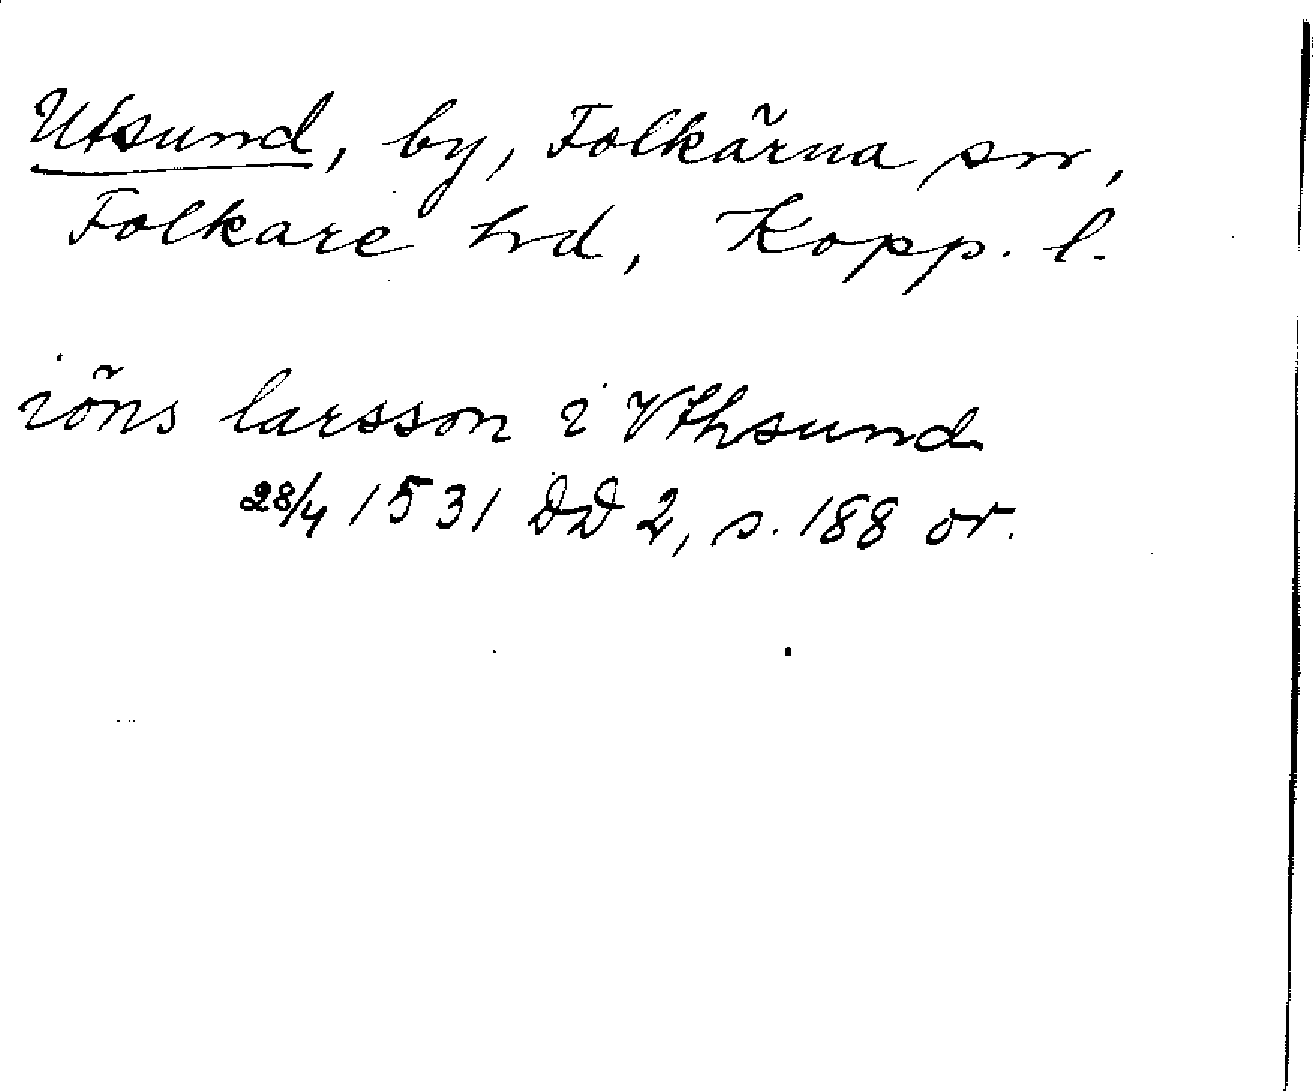 Utsund, by, Folkärna sn,
Folkare hd, Kopp. l.
iöns larsson i Vthsund
28/4 1531 DD 2, s. 188 or.